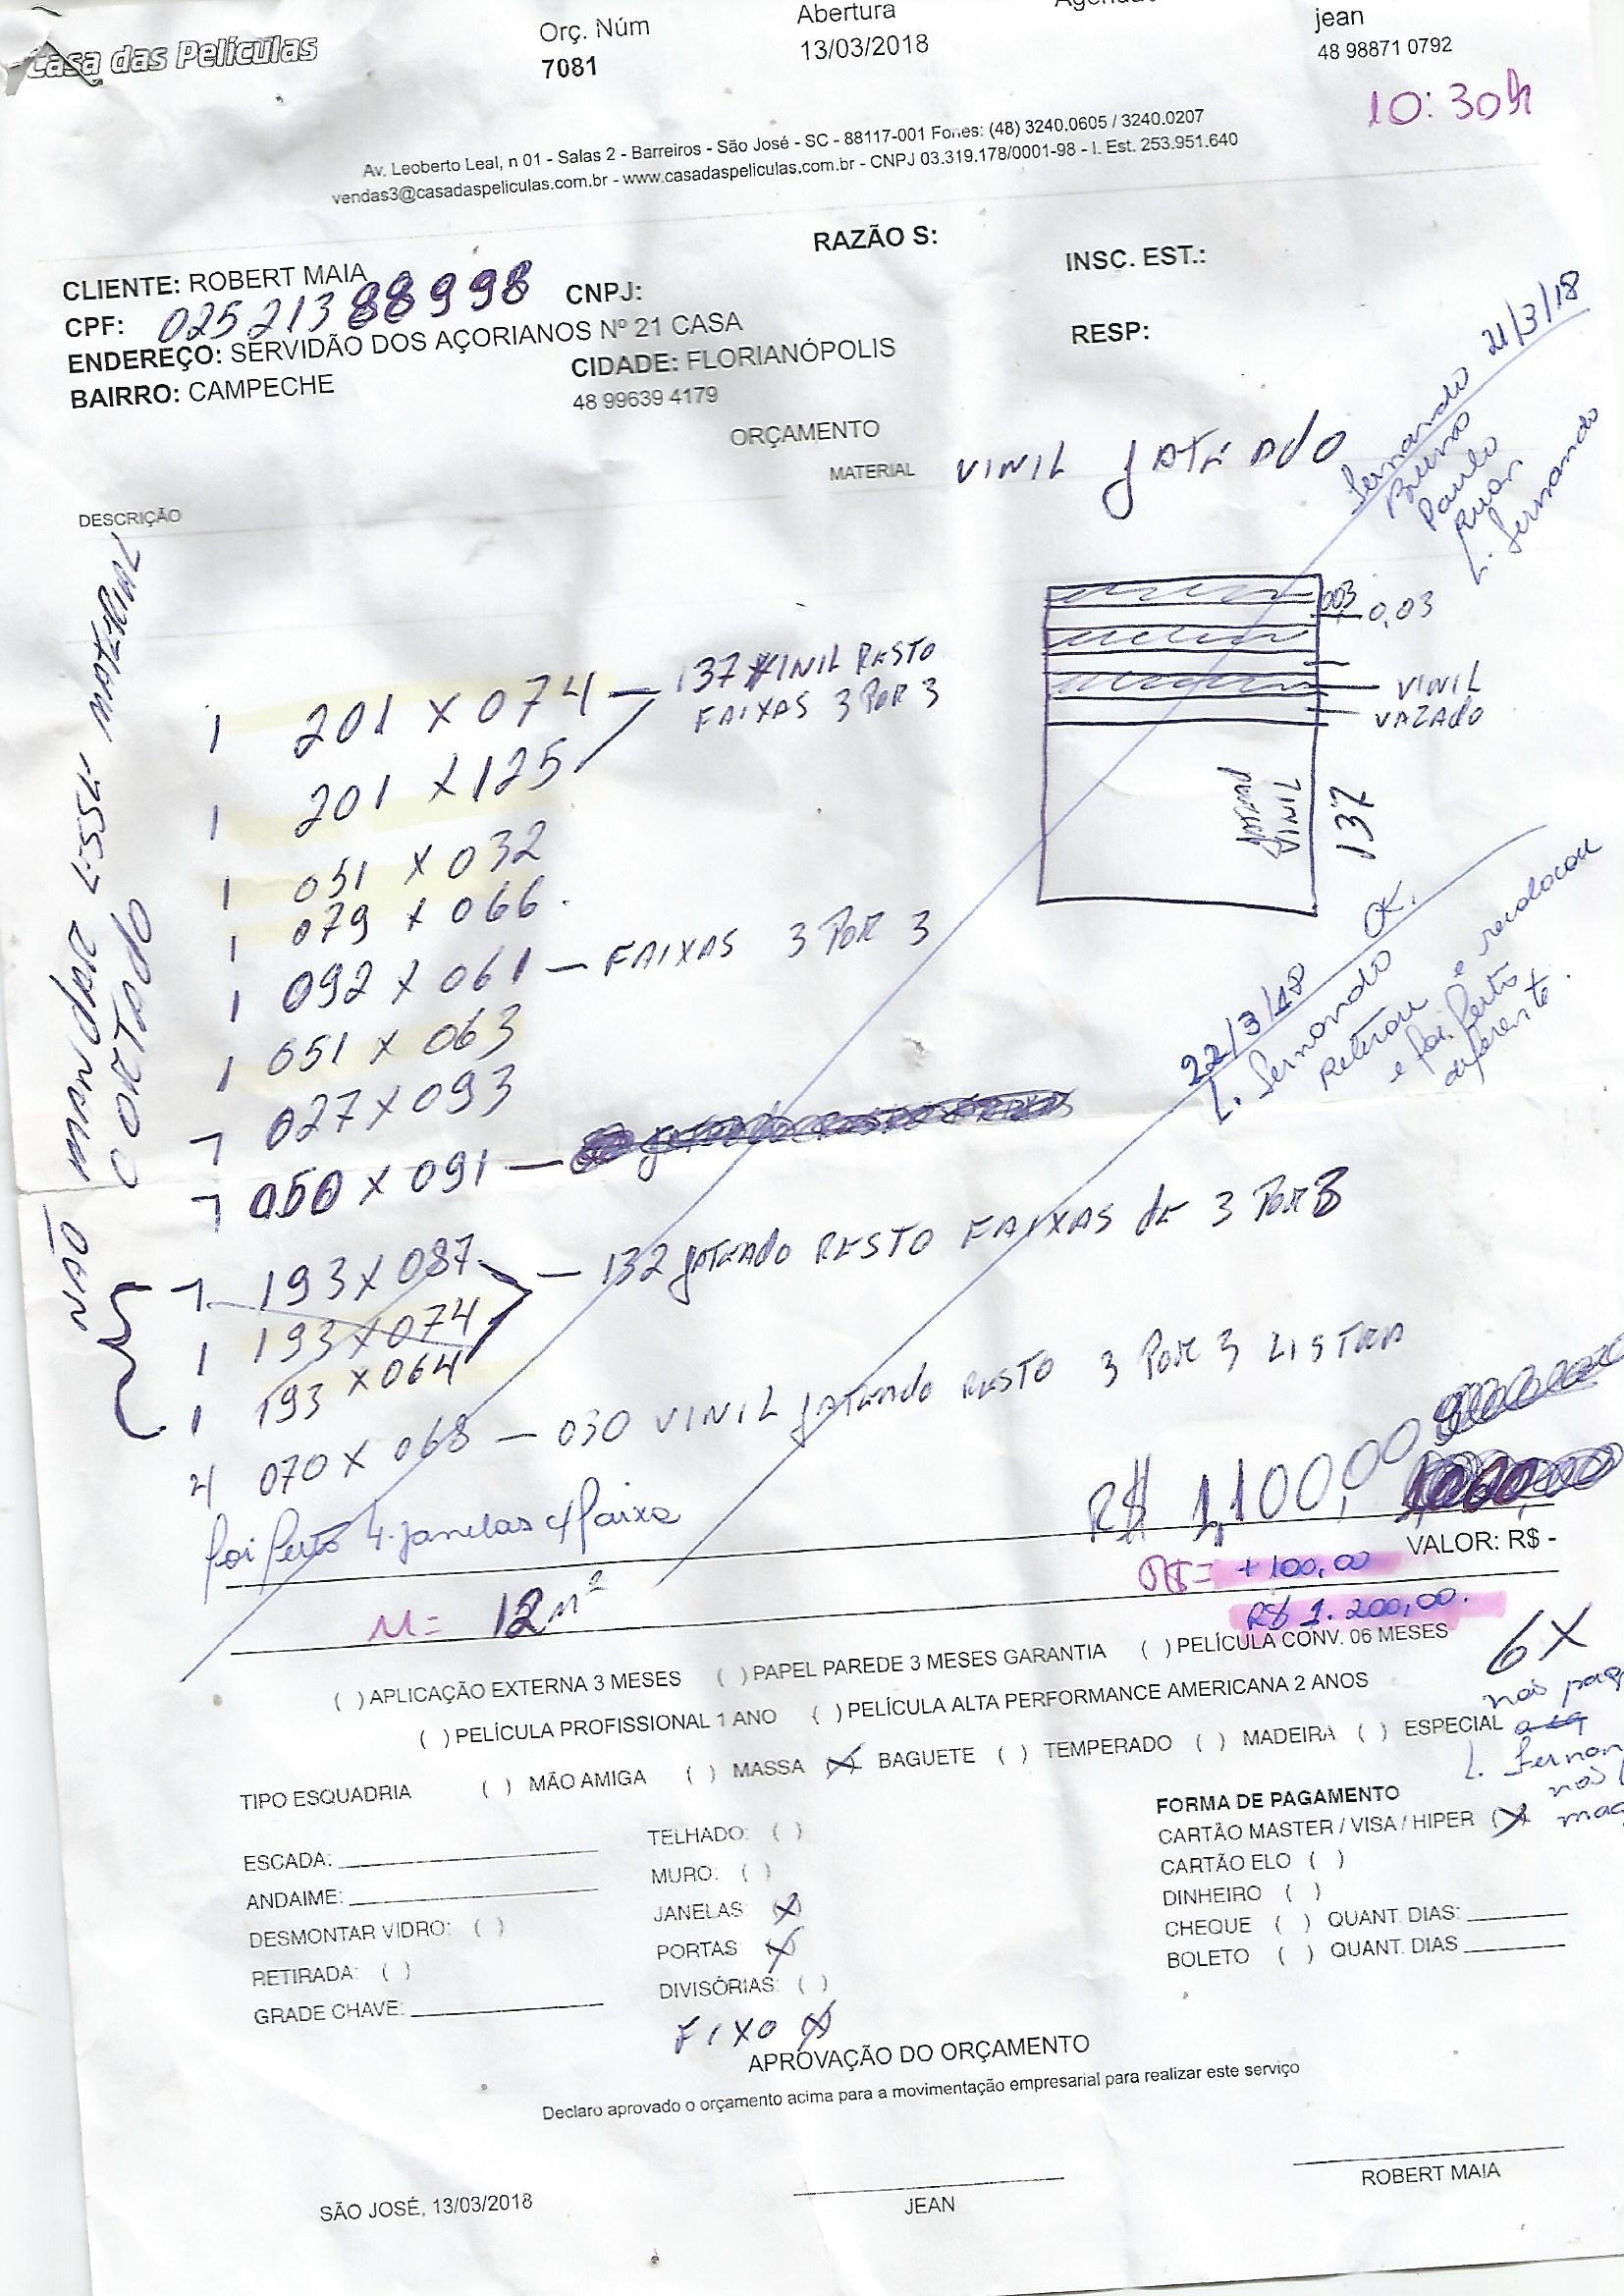 Casa das Películas
Orç. Núm
7081
Abertura
13/03/2018
jean
48 98871 0792
10:30h
Av. Leoberto Leal, n 01 - Salas 2 - Barreiros - São José - SC - 88117-001 Fones: (48) 3240.0605 / 3240.0207
vendas3@casadaspeliculas.com.br - www.casadaspeliculas.com.br - CNPJ 03.319.178/0001-98 - I. Est. 253.951.640
RAZÃO S:
CLIENTE: ROBERT MAIA
INSC. EST.:
CPF: 02521388998 CNPJ:
ENDEREÇO: SERVIDÃO DOS AÇORIANOS Nº 21 CASA
RESP:
BAIRRO: CAMPECHE
CIDADE: FLORIANÓPOLIS
48 99639 4179
21/3/18
Fernando
Bruno
Paulo
Ruan
L. Fernando
ORÇAMENTO
MATERIAL VINIL JATEADO
DESCRIÇÃO
NÃO MANDAR ESSE MATERIAL
CORTADO
003 0,03
VINIL
VAZADO
VINIL
137
1 201 X 074 — 137 VINIL RESTO
FAIXAS 3 POR 3
1 201 X 125
1 051 X 032
1 079 X 066.
1 092 X 061 — FAIXAS 3 POR 3
1 051 X 063
1 027 X 093
1 050 X 091 —
22/3/18 OK.
L. Fernando
Retirou e recolocou
e foi feito
diferente.
1 193 X 087 — 132 JATEADO RESTO FAIXAS DE 3 POR 3
1 193 X 074
1 193 X 064
4 070 X 068 — 030 VINIL JATEADO RESTO 3 POR 3 LISTRA
foi feito 4 janelas c/ faixa
R$ 1,100,00
VALOR: R$ -
+100,00
R$ 1.200,00.
M= 12m²
6X
( ) APLICAÇÃO EXTERNA 3 MESES ( ) PAPEL PAREDE 3 MESES GARANTIA ( ) PELÍCULA CONV. 06 MESES
( ) PELÍCULA PROFISSIONAL 1 ANO ( ) PELÍCULA ALTA PERFORMANCE AMERICANA 2 ANOS
TIPO ESQUADRIA ( ) MÃO AMIGA ( ) MASSA (X) BAGUETE ( ) TEMPERADO ( ) MADEIRA ( ) ESPECIAL
L. Fernan
ESCADA:
ANDAIME:
DESMONTAR VIDRO: ( )
RETIRADA: ( )
GRADE CHAVE:
TELHADO: ( )
MURO: ( )
JANELAS (X)
PORTAS (X)
DIVISÓRIAS: ( )
FIXO (X)
FORMA DE PAGAMENTO
CARTÃO MASTER / VISA / HIPER (X)
CARTÃO ELO ( )
DINHEIRO ( )
CHEQUE ( ) QUANT. DIAS:
BOLETO ( ) QUANT. DIAS
APROVAÇÃO DO ORÇAMENTO
Declaro aprovado o orçamento acima para a movimentação empresarial para realizar este serviço
SÃO JOSÉ, 13/03/2018
JEAN
ROBERT MAIA